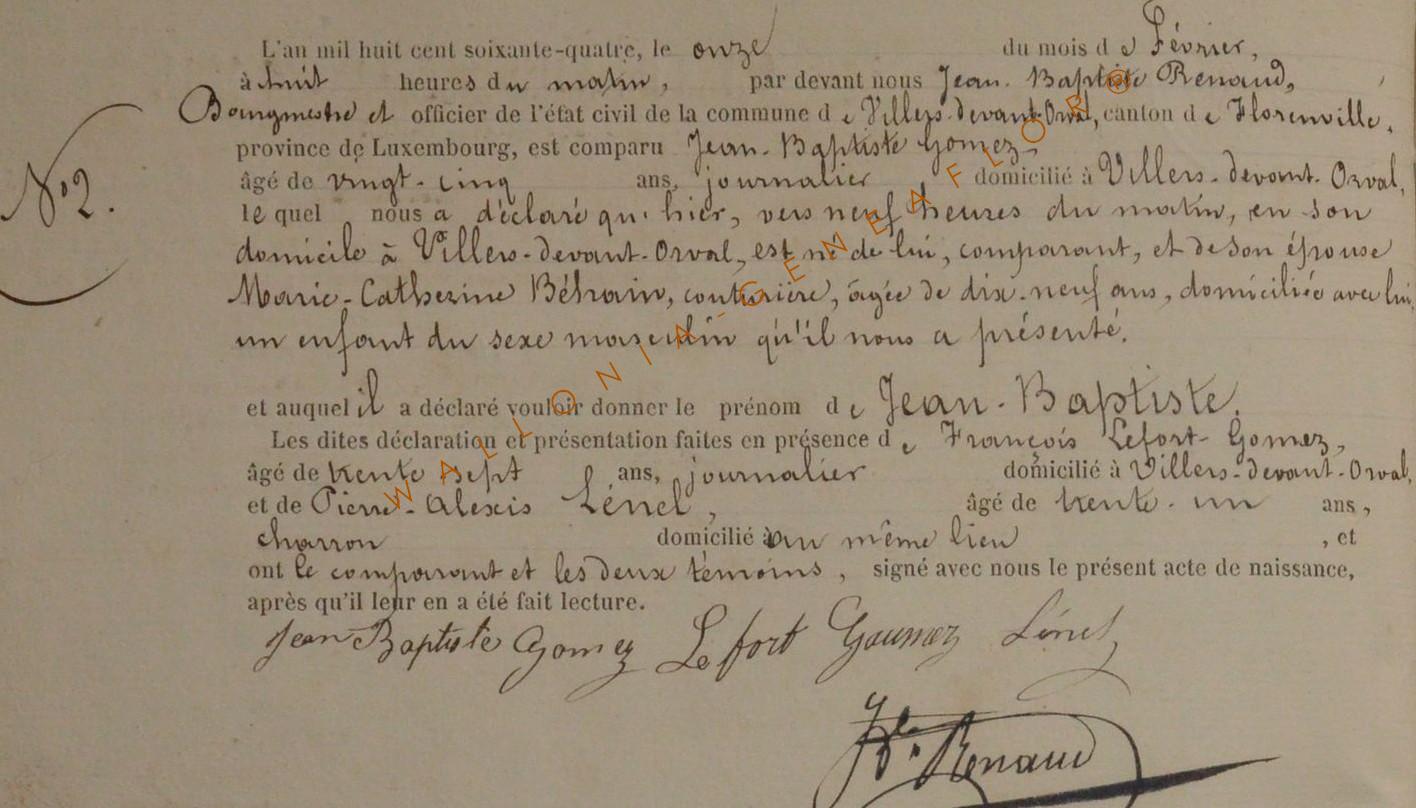 L'an mil huit cent soixante-quatre, le onze du mois de Février,
à huit heures du matin, par devant nous Jean-Baptiste Renaud,
Bourgmestre et officier de l'état civil de la commune de Villers-devant-Orval, canton de Florenville,
province de Luxembourg, est comparu Jean-Baptiste Gomez
âgé de vingt-cinq ans, journalier domicilié à Villers-devant-Orval,
N° 2.
lequel nous a déclaré qu'hier, vers neuf heures du matin, en son
domicile à Villers-devant-Orval, est né de lui, comparant, et de son épouse
Marie-Catherine Béhrain, couturière, âgée de dix-neuf ans, domiciliée avec lui,
un enfant du sexe masculin qu'il nous a présenté.
et auquel il a déclaré vouloir donner le prénom de Jean-Baptiste.
Les dites déclaration et présentation faites en présence de François Lefort-Gomez,
âgé de trente sept ans, journalier domicilié à Villers-devant-Orval,
et de Pierre-Alexis Lénel, âgé de trente-un ans,
charron domicilié au même lieu, et
ont le comparant et les deux témoins, signé avec nous le présent acte de naissance,
après qu'il leur en a été fait lecture.
Jean Baptiste Gomez Lefort Goumez Lénel
JB. Renaud
WALLONIA-GENEAFLORB